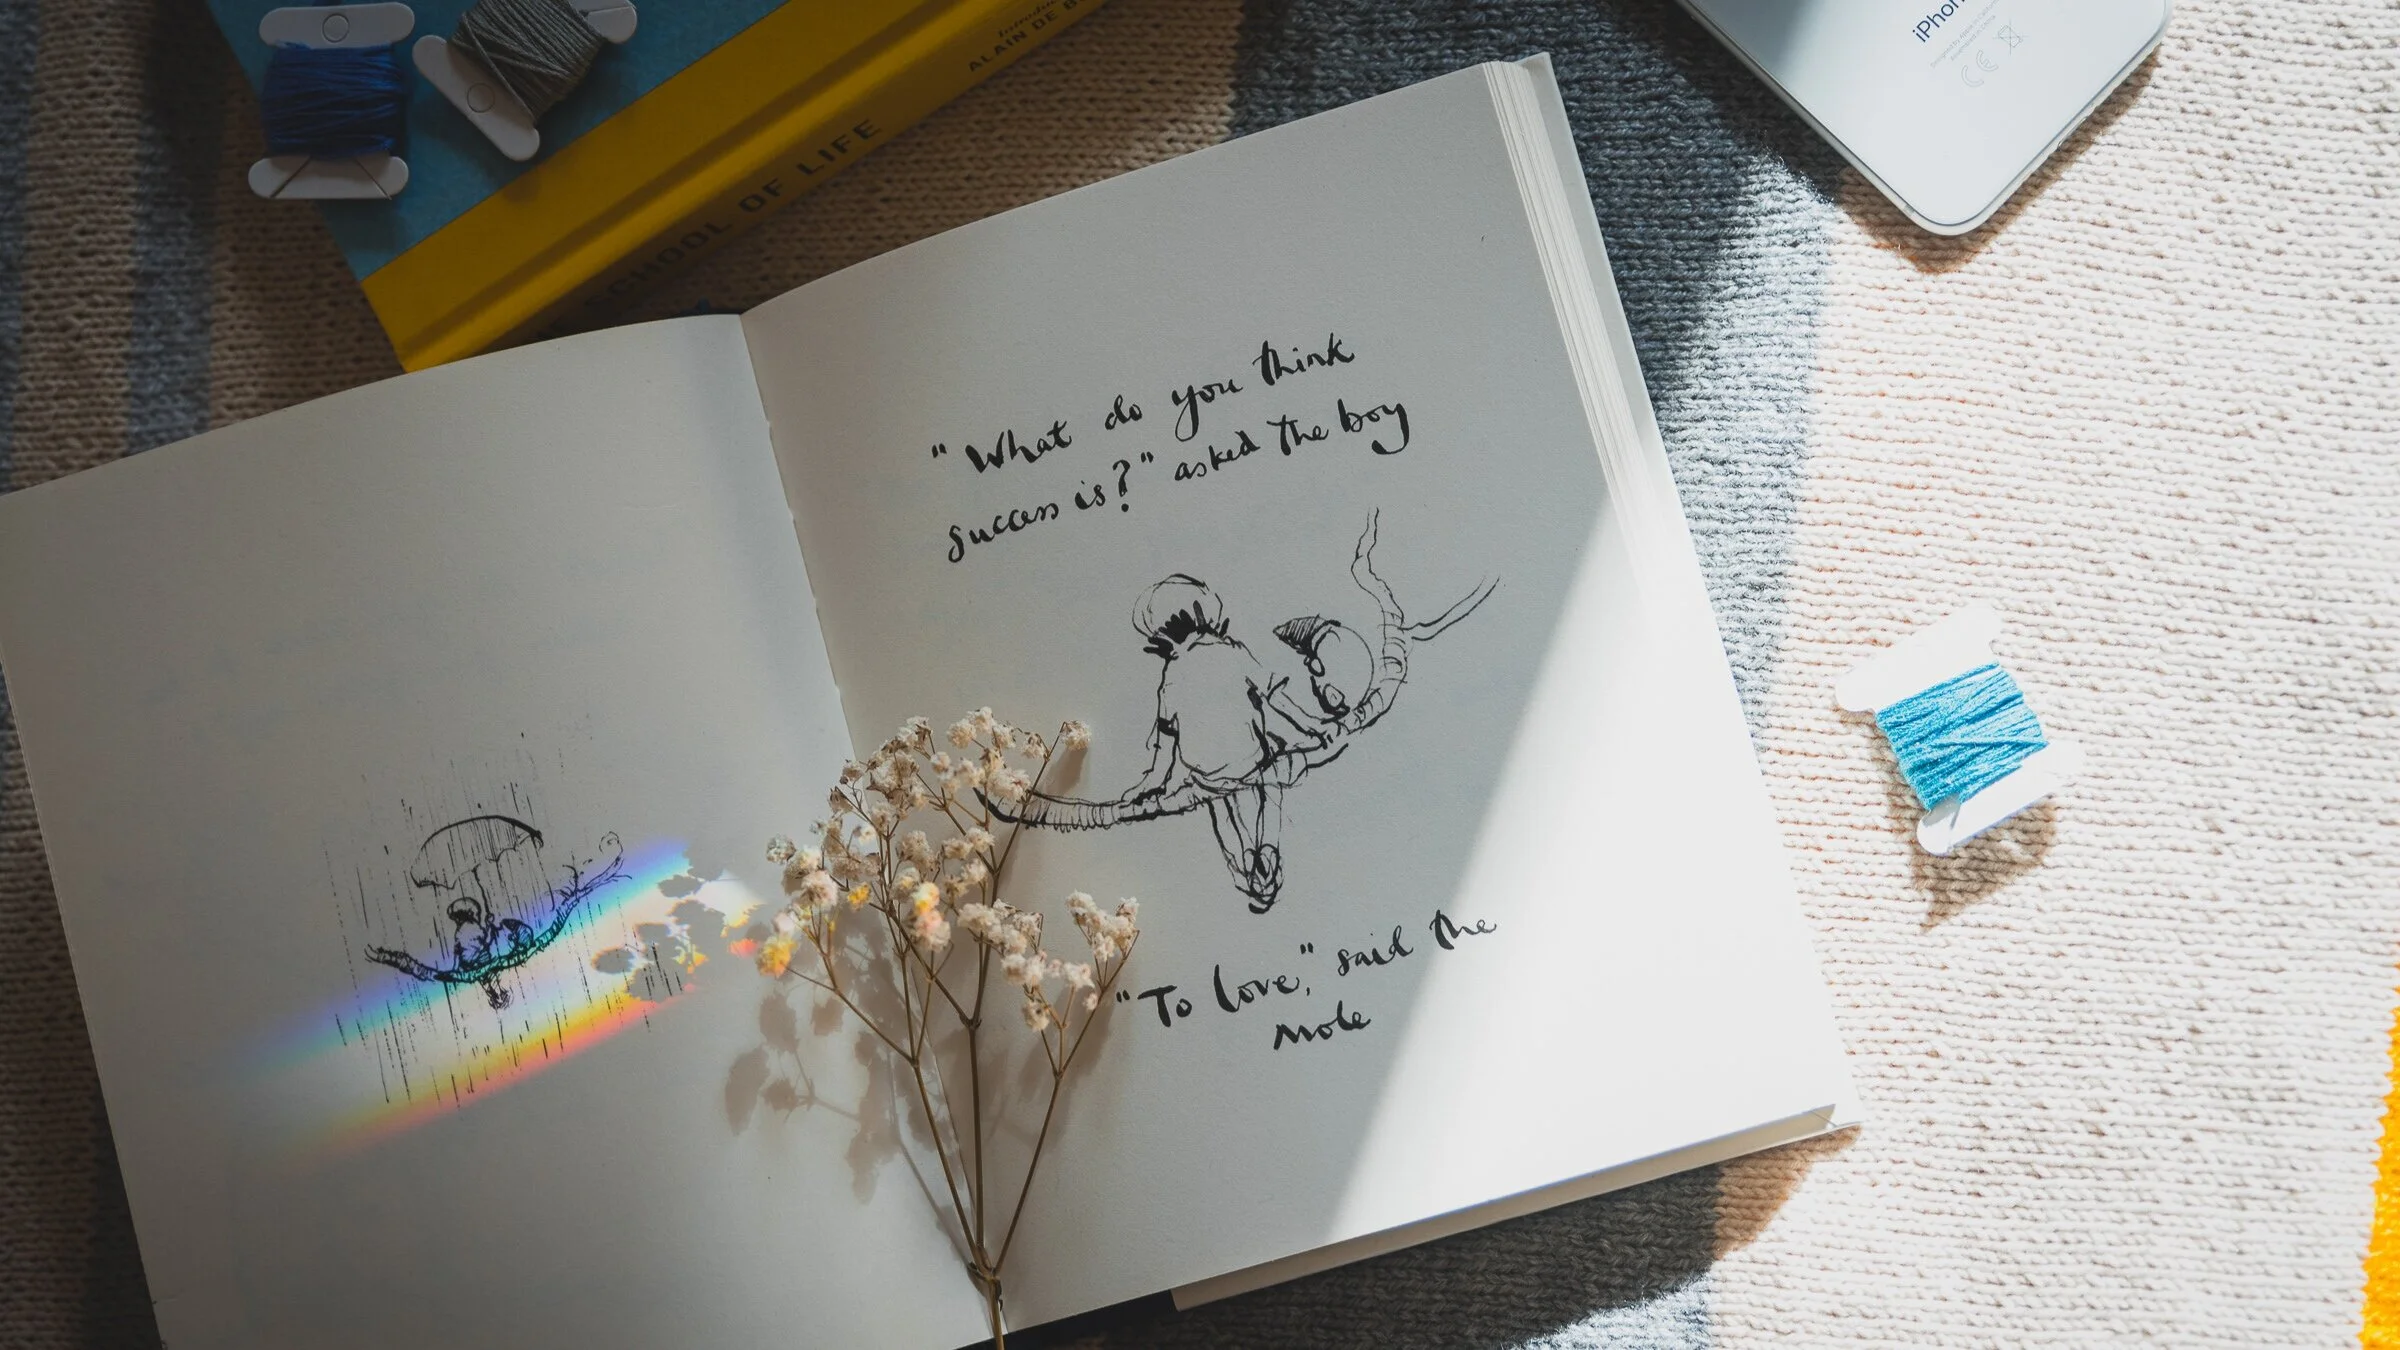 Introduc
ALAIN DE B
SCHOOL OF LIFE
iPhon
"What do you think
success is?" asked the boy
"To love," said the
mole